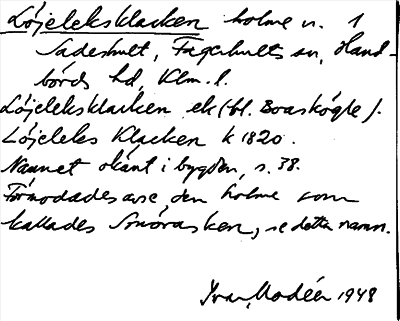 Löjeleksklacken holme n. 1
Saderhult, Fagerhults sn, Hand-
börds hd, Klm. l.
Löjeleksklacken ek (bl. Boaskögle).
Löjeleks Klacken k 1820.
Namnet okänt i bygden, s. 38.
Förmodades avse den holme som
kallades Smörasken, se detta namn.
Ivar Modéer 1948